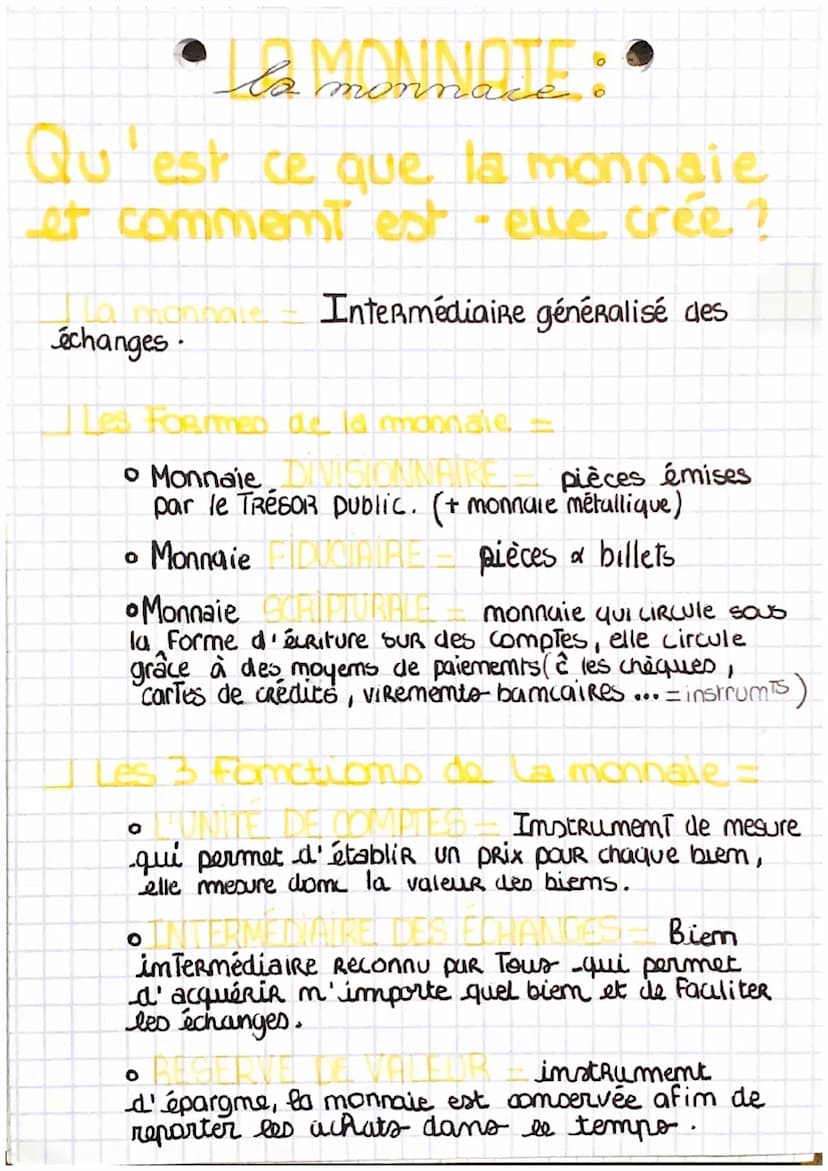 LA MONNAIE :
la monnaie
Qu'est ce que la monnaie
et comment est - elle crée ?
La monnaie = Intermédiaire généralisé des
échanges.
Les Formes de la monnaie =
Monnaie DIVISIONNAIRE = pièces émises
par le TRÉSOR public. (+ monnaie métallique)
Monnaie FIDUCIAIRE = pièces & billets
Monnaie SCRIPTURALE = monnaie qui circule sous
la Forme d'écriture sur des comptes, elle circule
grâce à des moyens de paiements (ĉ les chèques,
cartes de crédits, virements bancaires ... = instrumts)
Les 3 Fonctions de la monnaie =
L'UNITÉ DE COMPTES = Instrument de mesure
qui permet d'établir un prix pour chaque bien,
elle mesure donc la valeur des biens.
INTERMÉDIAIRE DES ÉCHANGES = Bien
intermédiaire reconnu par Tous qui permet
d'acquérir n'importe quel bien et de Faciliter
les échanges.
RÉSERVE DE VALEUR = instrument
d'épargne, la monnaie est concervée afin de
reporter les achats dans le temps.